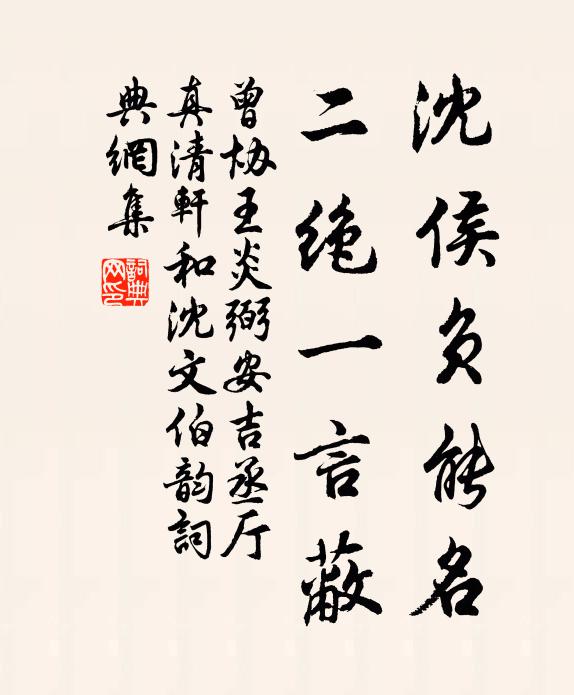 沈侯负能名
二绝一言蔽
曾协王炎弼安吉丞厅
真清軒和沈文伯韵詞
典網集
詞典网印